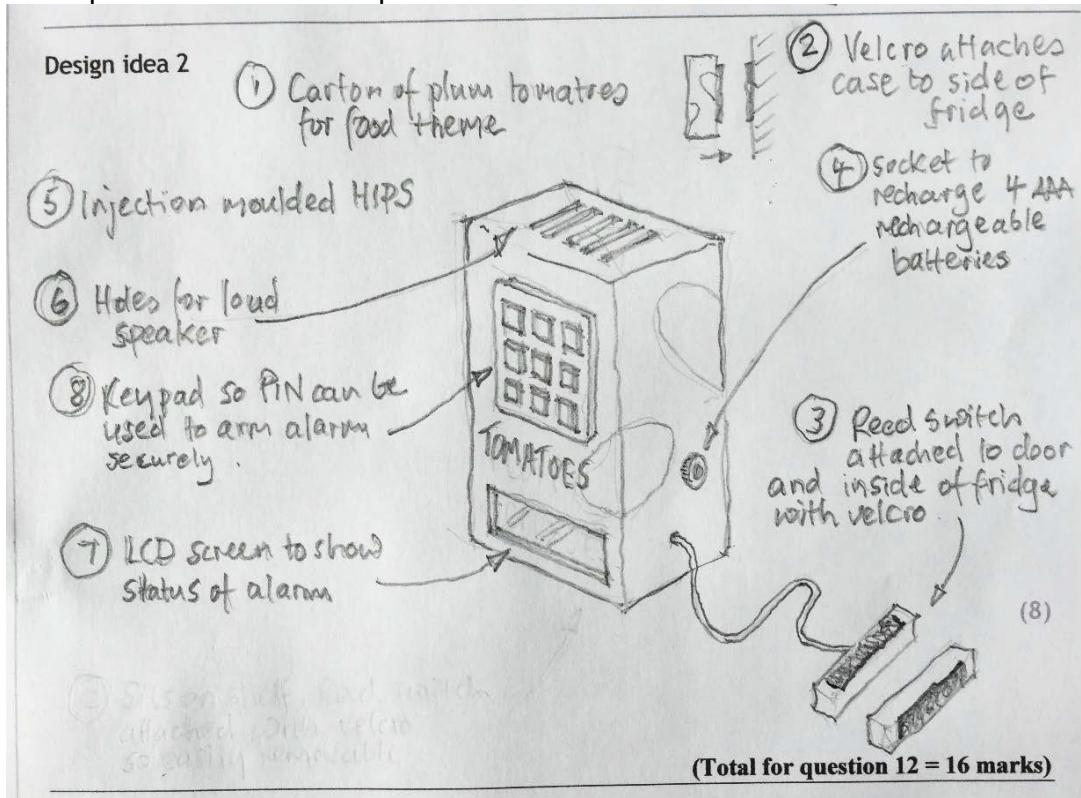 Design idea 2
① Carton of plum tomatoes
for food theme
② Velcro attaches
case to side of
fridge
④ socket to
recharge 4 AAA
rechargeable
batteries
⑤ Injection moulded HIPS
⑥ Holes for loud
speaker
⑧ Keypad so PiN can be
used to arm alarm
securely.
TOMATOES
③ Reed switch
attached to door
and inside of fridge
with velcro
⑦ LCD screen to show
status of alarm
(8)
Sits on shelf, Reed switch
attached with velcro
so easily removable
(Total for question 12 = 16 marks)